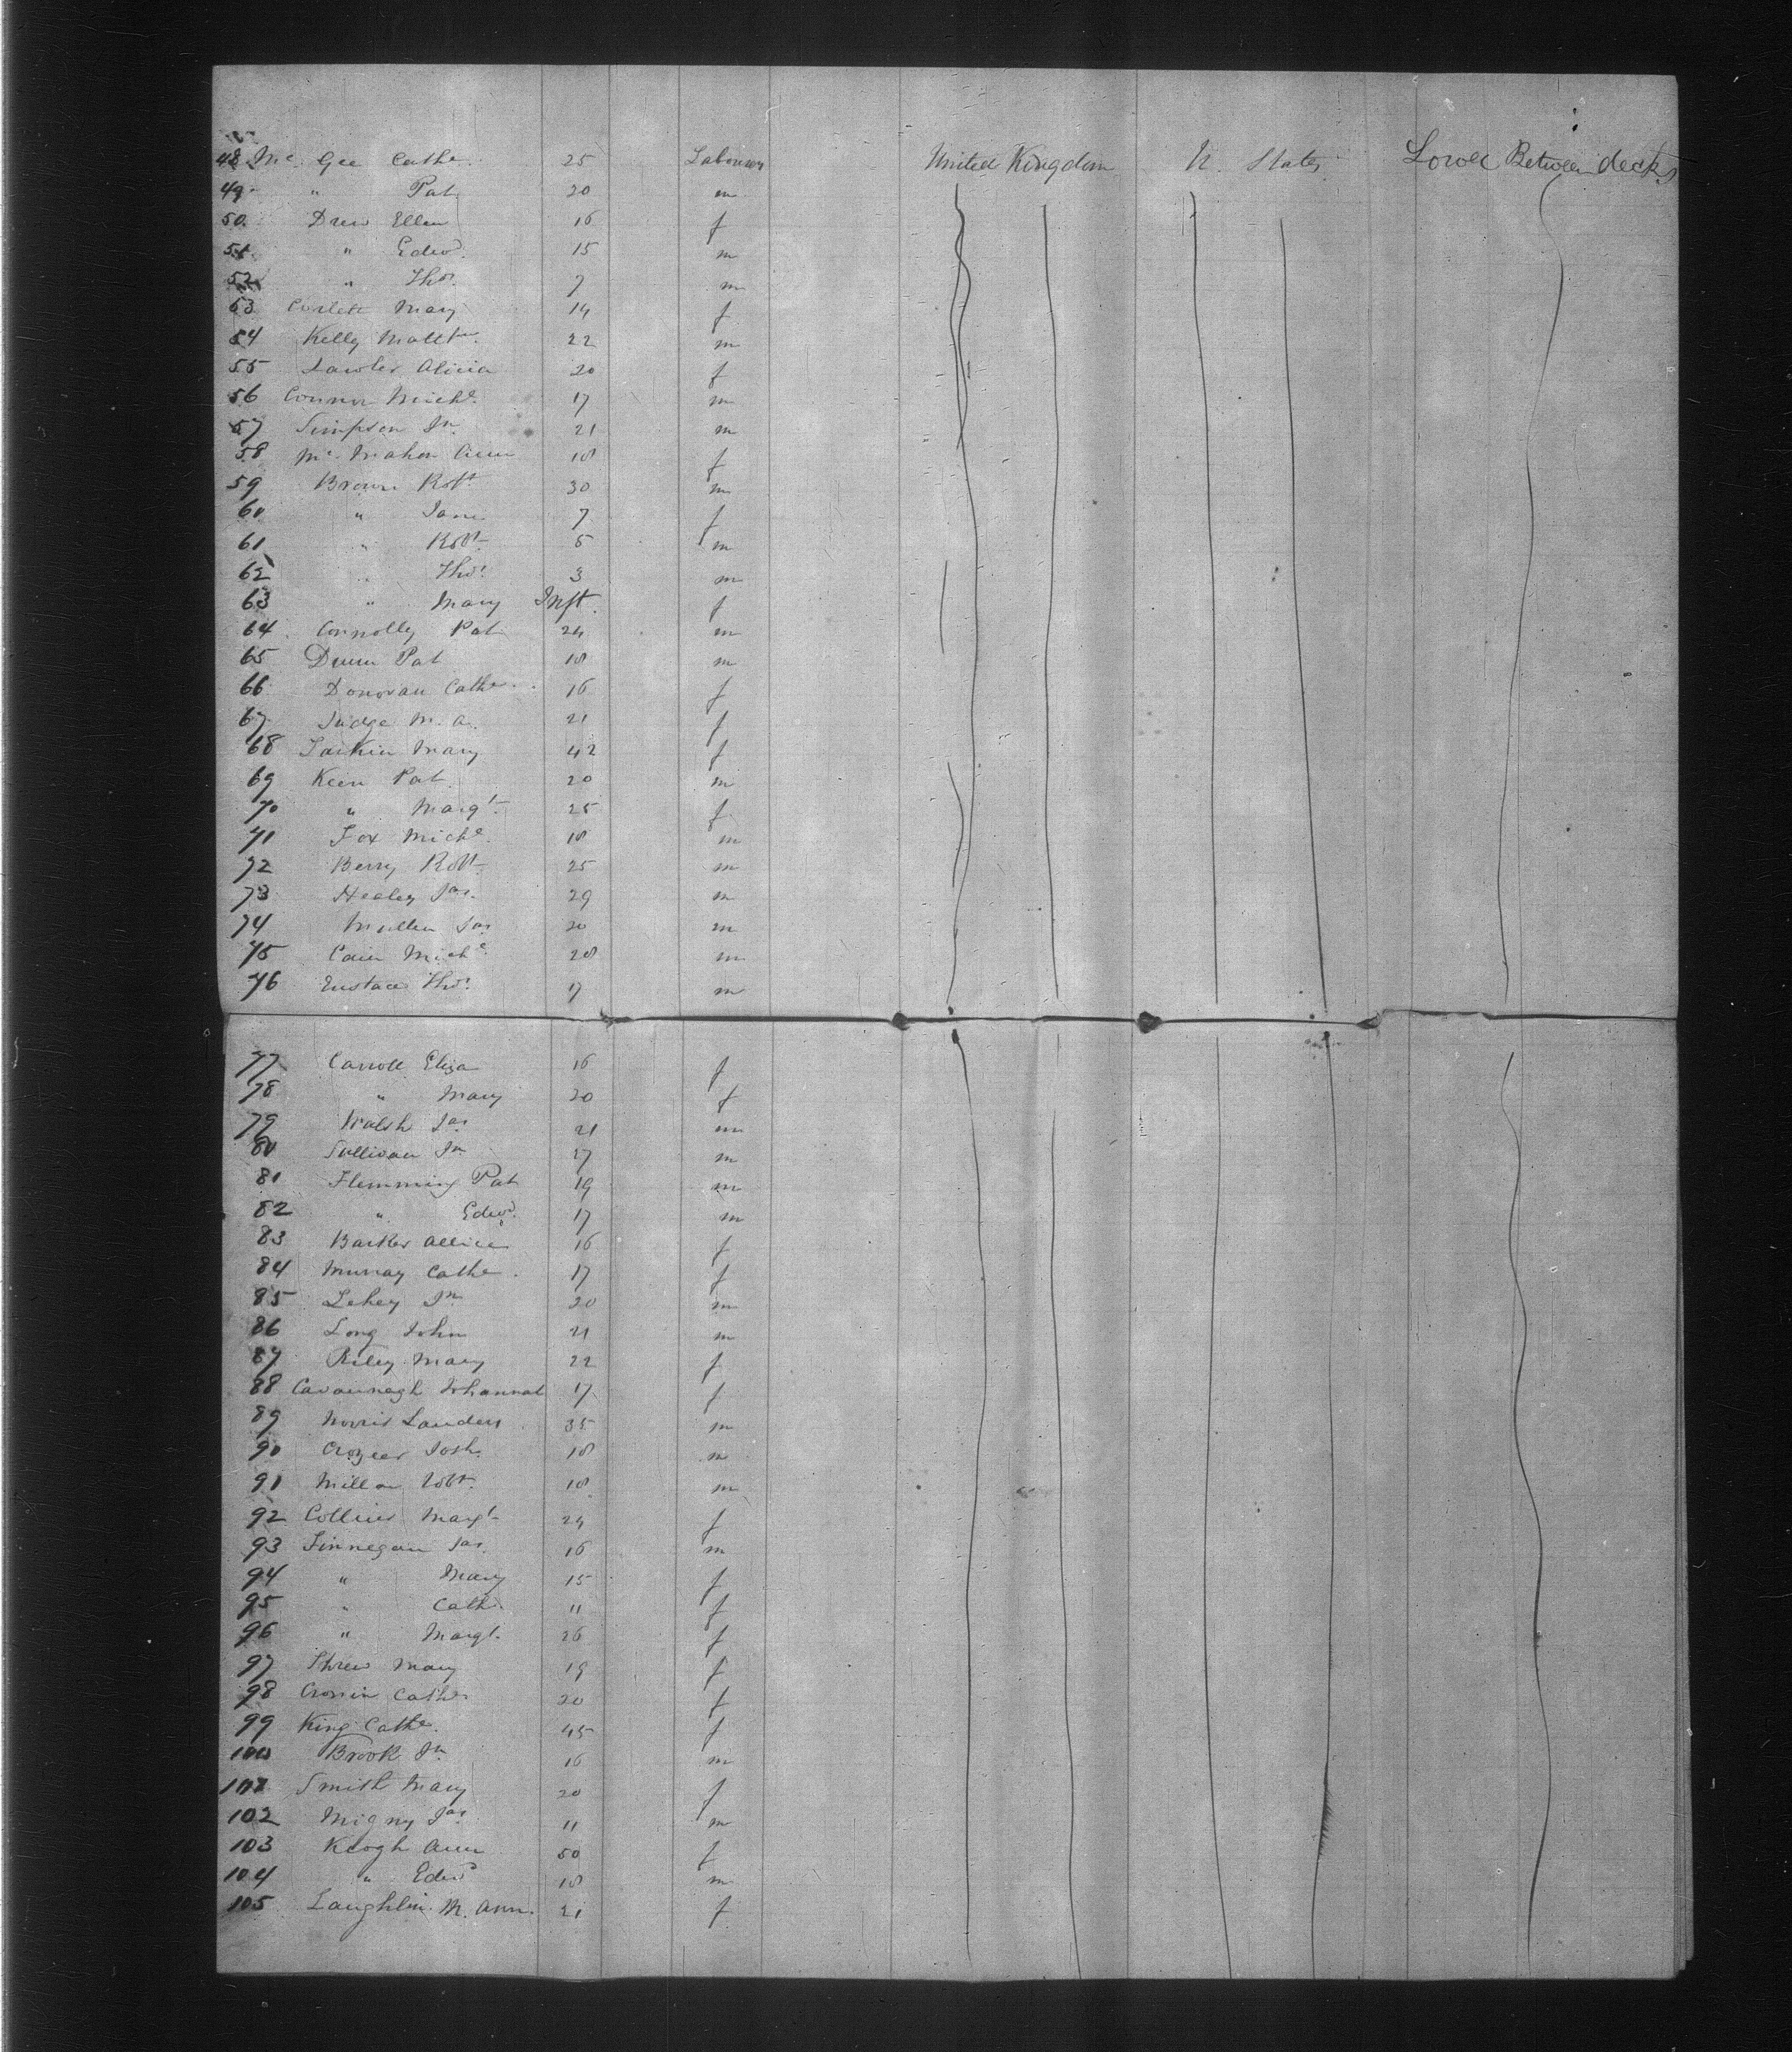 48 Mc Gee Cathe 25 Labourer United Kingdom U. States Lower Between decks
49 " Pat 20 m
50 Drew Ellen 16 f
51 " Edwd 15 m
52 " Thos 7 m
53 Corlett Mary 14 f
54 Kelly Matth 22 m
55 Lawler Alicia 20 f
56 Connor Michl 17 m
57 Simpson Jn 21 m
58 Mc Mahon Ann 18 f
59 Brown Robt 30 m
60 " Jane 7 f
61 " Robt 5 m
62 " Thos 3 m
63 " Mary Inft. f
64 Connolly Pat 24 m
65 Dunn Pat 18 m
66 Donovan Cathe 16 f
67 Judge M. A. 21 f
68 Larkin Mary 42 f
69 Keen Pat 20 m
70 " Margt 25 f
71 Fox Michl 18 m
72 Berry Robt 25 m
73 Heeley Jas 29 m
74 Mullen Jas 20 m
75 Cain Michl 28 m
76 Eustace Thos 17 m
77 Carroll Eliza 16 f
78 " Mary 20 f
79 Walsh Jas 21 m
80 Sullivan Jn 27 m
81 Flemming Pat 19 m
82 " Edwd 17 m
83 Barker Allice 16 f
84 Murray Cathe 17 f
85 Lehey Jn 20 m
86 Long John 21 m
87 Riley Mary 22 f
88 Cavaunagh Johannah 17 f
89 Norris Landers 35 m
90 Crozeer Josh 18 m
91 Millar Robt 18 m
92 Collins Margt 24 f
93 Finnegan Jas 16 m
94 " Mary 15 f
95 " Cath 11 f
96 " Margt. 26 f
97 Mary 19 f
98 Cronin Cathe 20 f
99 King Cathe 45 f
100 Brook Jn 16 m
101 Smith Mary 20 f
102 Migny Jas 11 m
103 Keogh Ann 50 f
104 " Edwd 18 m
105 Laughlin M. Ann. 21 f